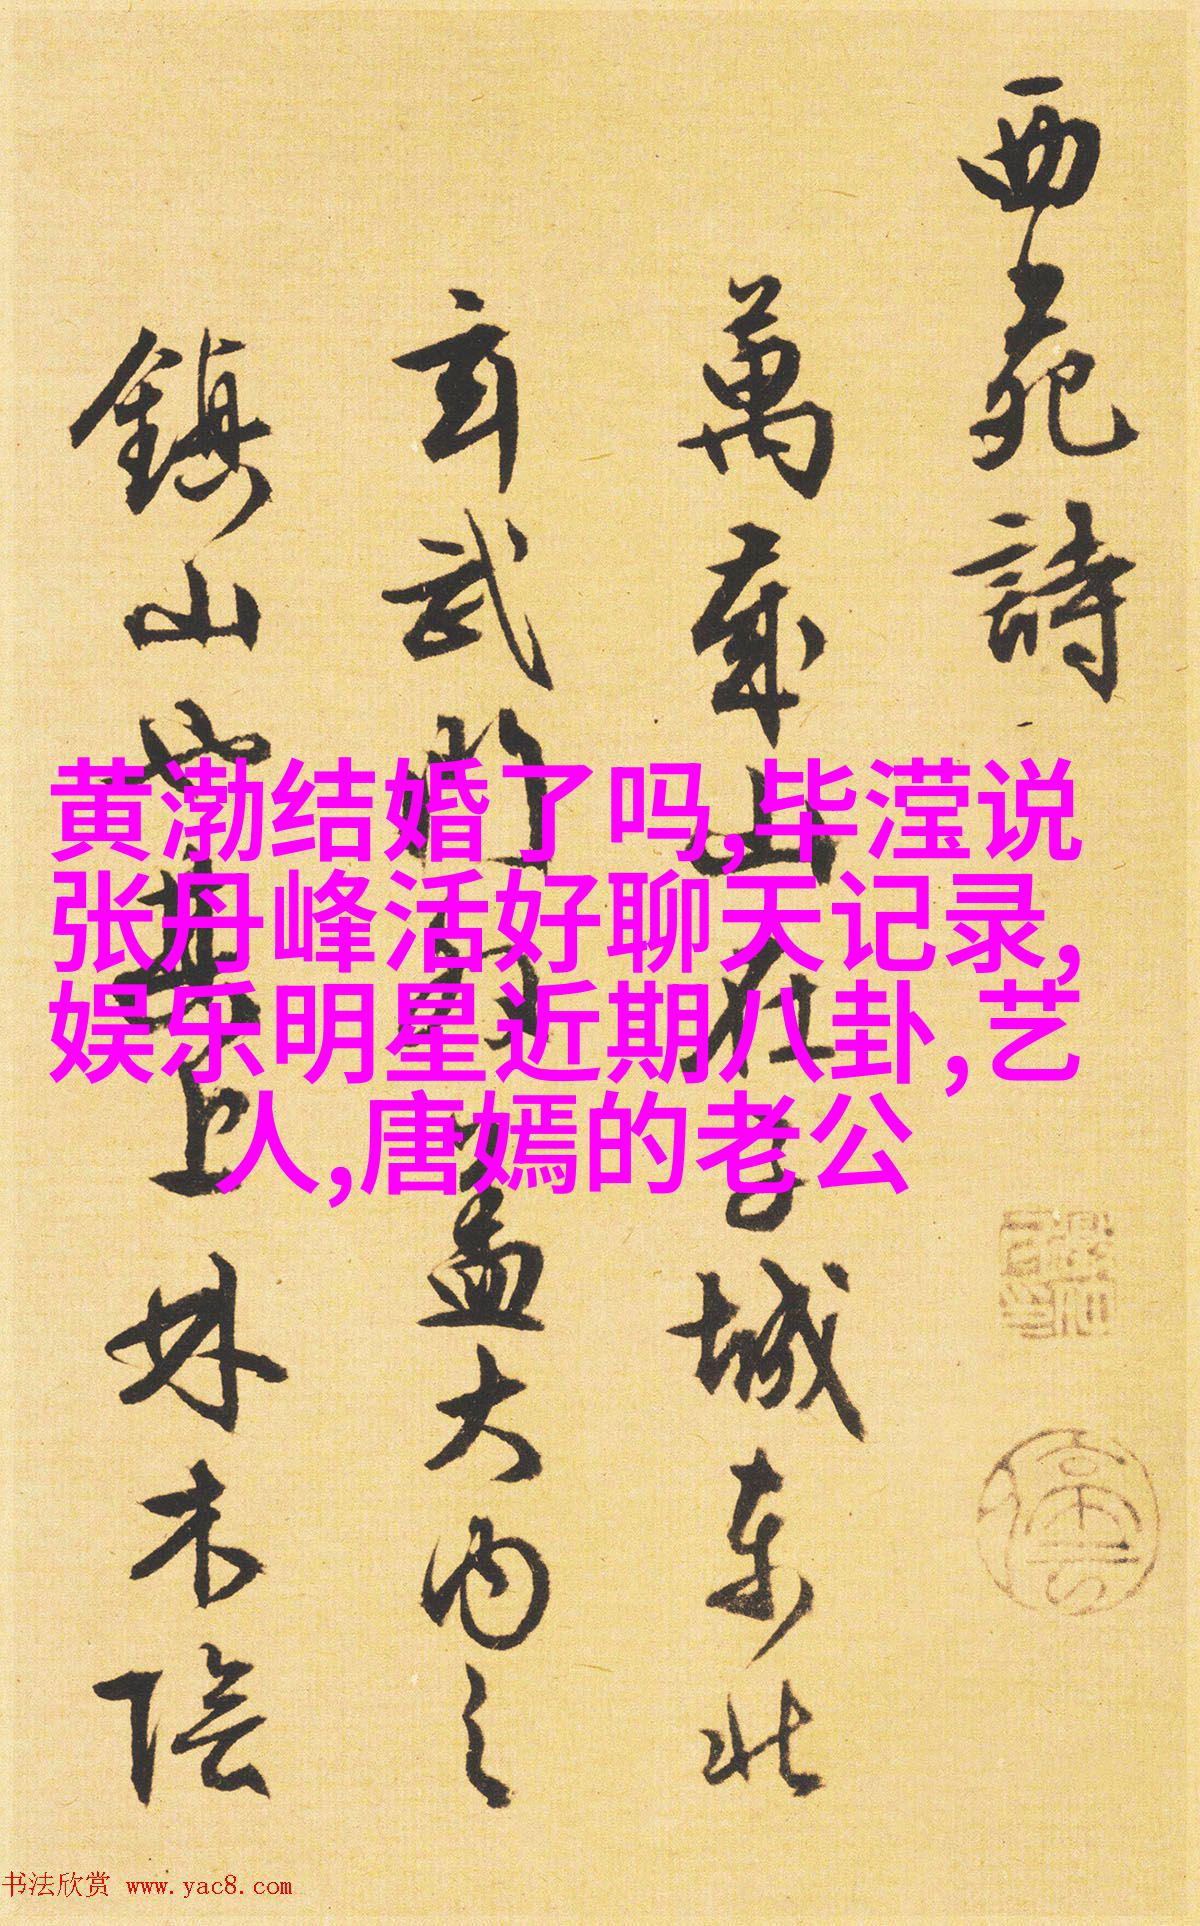 西苑詩
萬歲山在子城東北
玄武門外盖大内之
鎮山也其上林木陰
黄渤结婚了吗,毕滢说
张丹峰活好聊天记录,
娱乐明星近期八卦,艺
人,唐嫣的老公
书法欣赏 www.yac8.com